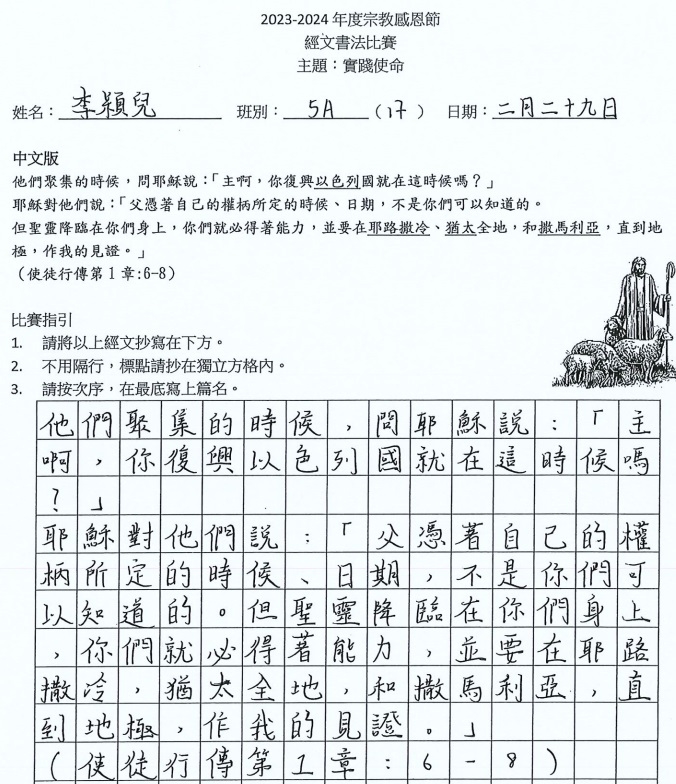 2023-2024 年度宗教感恩節
經文書法比賽
主題：實踐使命
姓名：李穎兒 班別：5A（17） 日期：二月二十九日
中文版
他們聚集的時候，問耶穌說：「主啊，你復興以色列國就在這時候嗎？」
耶穌對他們說：「父憑著自己的權柄所定的時候、日期，不是你們可以知道的。
但聖靈降臨在你們身上，你們就必得著能力，並要在耶路撒冷、猶太全地，和撒馬利亞，直到地
極，作我的見證。」
（使徒行傳第 1 章:6-8）
比賽指引
1. 請將以上經文抄寫在下方。
2. 不用隔行，標點請抄在獨立方格內。
3. 請按次序，在最底寫上篇名。
他們聚集的時候，問耶穌說：「主
啊，你復興以色列國就在這時候嗎
？」
耶穌對他們說：「父憑著自己的權
柄所定的時候、日期，不是你們可
以知道的。但聖靈降臨在你們身上
，你們就必得著能力，並要在耶路
撒冷，猶太全地，和撒馬利亞，直
到地極，作我的見證。」
(使徒行傳第1章:6-8)